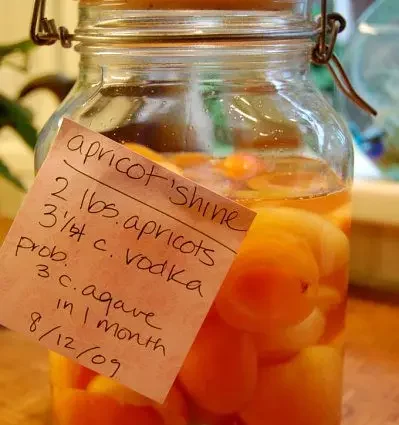 apricot 'shine
2 lbs. apricots
3 1/2 c. vodka
prob.
3 c. agave
in 1 month
8/12/09